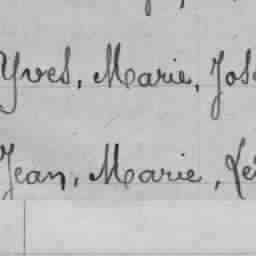 Yves, Marie,
Jean, Marie,